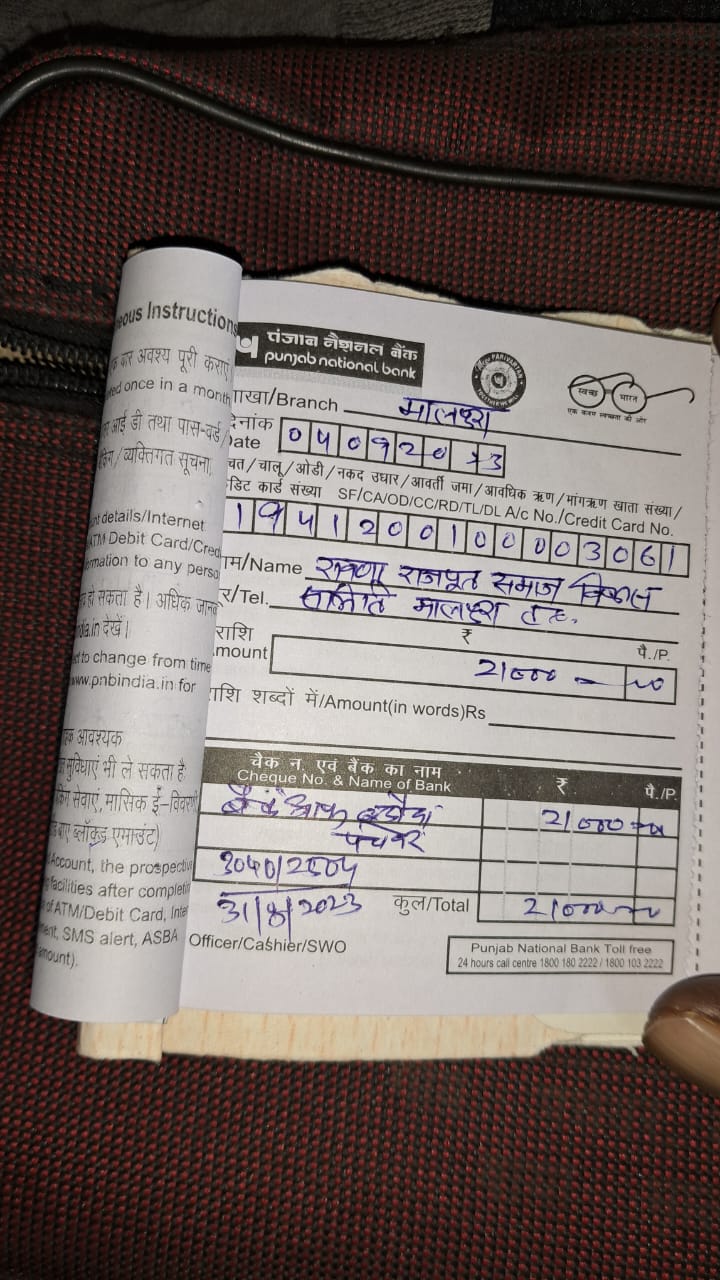 eous Instructions
क बार अवश्य पूरी कराएं
ed once in a month
आई डी तथा पास-वर्ड /
/ व्यक्तिगत सूचना,
details/Internet
ATM Debit Card/Cred
rmation to any perso
हो सकता है। अधिक जान
dia.in देखें।
ct to change from time
www.pnbindia.in for
आवश्यक
सुविधाएं भी ले सकता है
सेवाएं, मासिक ई-विवरणी
बाए ब्लॉक्ड एमाउंट)
Account, the prospectiv
facilities after completi
of ATM/Debit Card, Inte
ment, SMS alert, ASBA
amount).
पंजाब नैशनल बैंक
punjab national bank
PARIVARTAN
स्वच्छ भारत
एक कदम स्वच्छता की ओर
ाखा/Branch
दिनांक
Date 0 4 0 9 2 0 3
चत / चालू / ओडी / नकद उधार / आवर्ती जमा / आवधिक ऋण / मांगऋण खाता संख्या /
डिट कार्ड संख्या SF/CA/OD/CC/RD/TL/DL A/c No./Credit Card No.
1 9 4 1 2 0 0 1 0 0 0 0 3 0 6 1
ाम/Name राजपूत समाज विकास
र/Tel. समिति
राशि ₹ पै./P.
mount 21000
ाशि शब्दों में/Amount(in words)Rs
चैक न. एवं बैंक का नाम ₹ पै./P.
Cheque No. & Name of Bank
बैंक ऑफ बडौदा 21000
31/8/2023 कुल/Total 21000
Officer/Cashier/SWO
Punjab National Bank Toll free
24 hours call centre 1800 180 2222 / 1800 103 2222